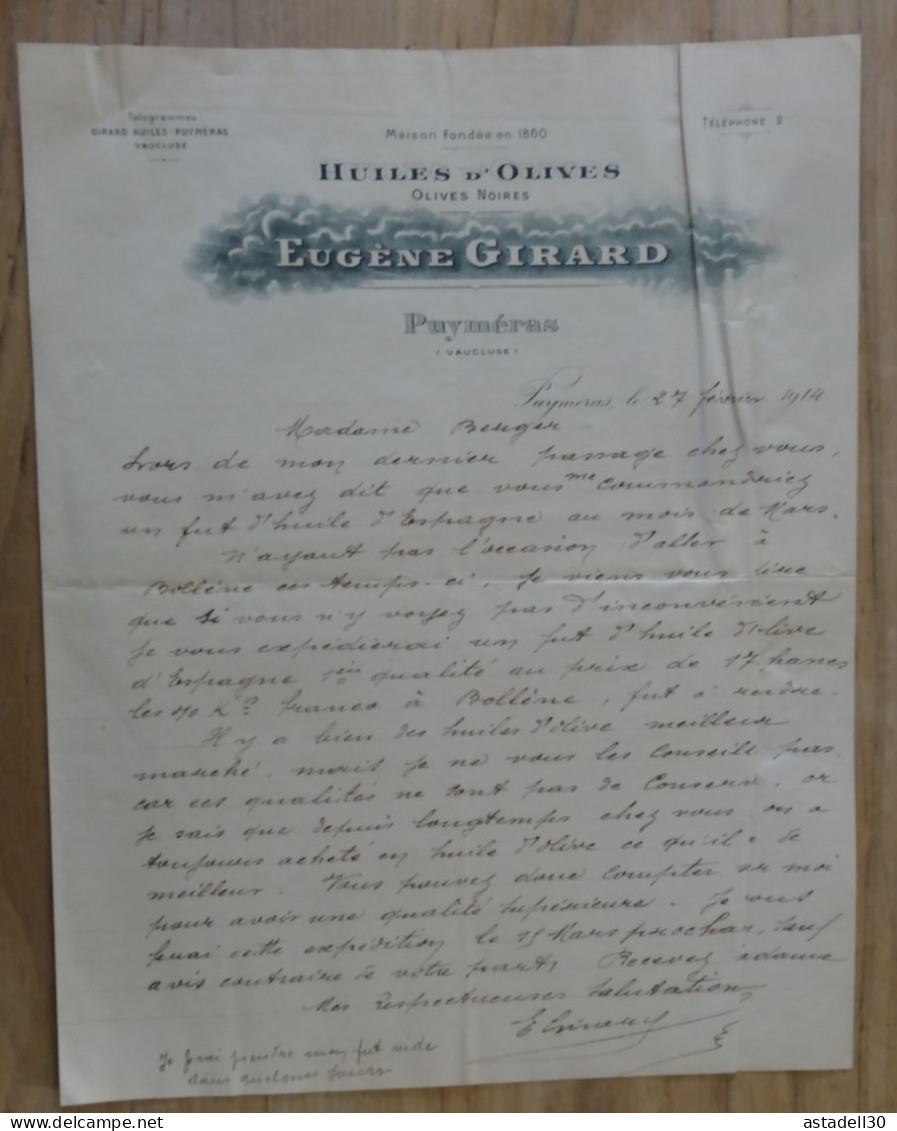 Telegrammes
GIRARD HUILES-PUYMERAS
VAUCLUSE
Maison fondée en 1860
TÉLÉPHONE 2
HUILES D'OLIVES
OLIVES NOIRES
EUGÈNE GIRARD
Puyméras
(VAUCLUSE)
Puymeras, le 27 février 1914
Madame Berger
Lors de mon dernier passage chez vous,
vous m'avez dit que vous me commanderiez
un fut d'huile d'Espagne au mois de Mars.
N'ayant pas l'occasion d'aller à
Bollène ces temps-ci, Je viens vous dire
que si vous n'y voyez pas d'inconvénient
Je vous expédierai un fut d'huile d'olive
d'Espagne 1ère qualité au prix de 17
les franco à Bollène, fut à rendre.
Il y a bien des huiles d'olive meilleur
marché, mais je ne vous les conseille pas
car ces qualités ne sont pas de conserve. or
Je sais que depuis longtemps chez vous on a
toujours acheté en huile d'olive ce qu'il a de
meilleur. Vous pouvez donc compter sr moi
pour avoir une qualité supérieure. Je vous
ferai cette expédition le 15 Mars prochain, sauf
avis contraire de votre part, Recevez
Mes Respectueuses salutations
E Girard
Je prendre mon fut vide
dans quelques jours
astadell30